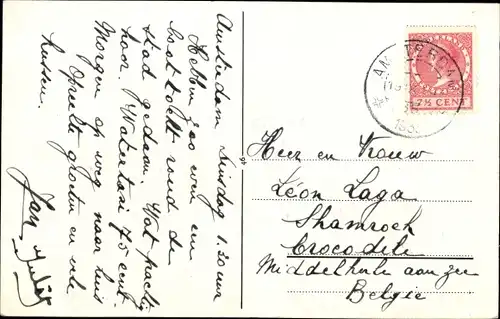 Amsterdam Dinsdag 1.30 uur
Hebben zoo even een
boottocht rond de
stad gedaan. Wat prachtig
hoor! Watertaxi 75 cent.
Morgen op weg naar huis
Oprechte groeten en vele
kussen.
Jan
NEDERLAND
7½ CENT
AMSTERDAM
Heer en Vrouw
Léon Laga
Shamrock
Crocodile
Middelkerke aan zee
Belgie